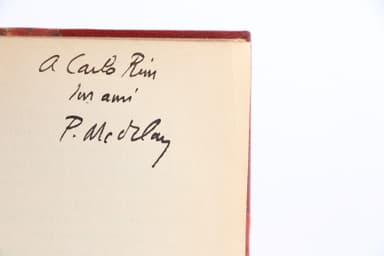 A Carlo Rim
son ami
P. Mc Orlan